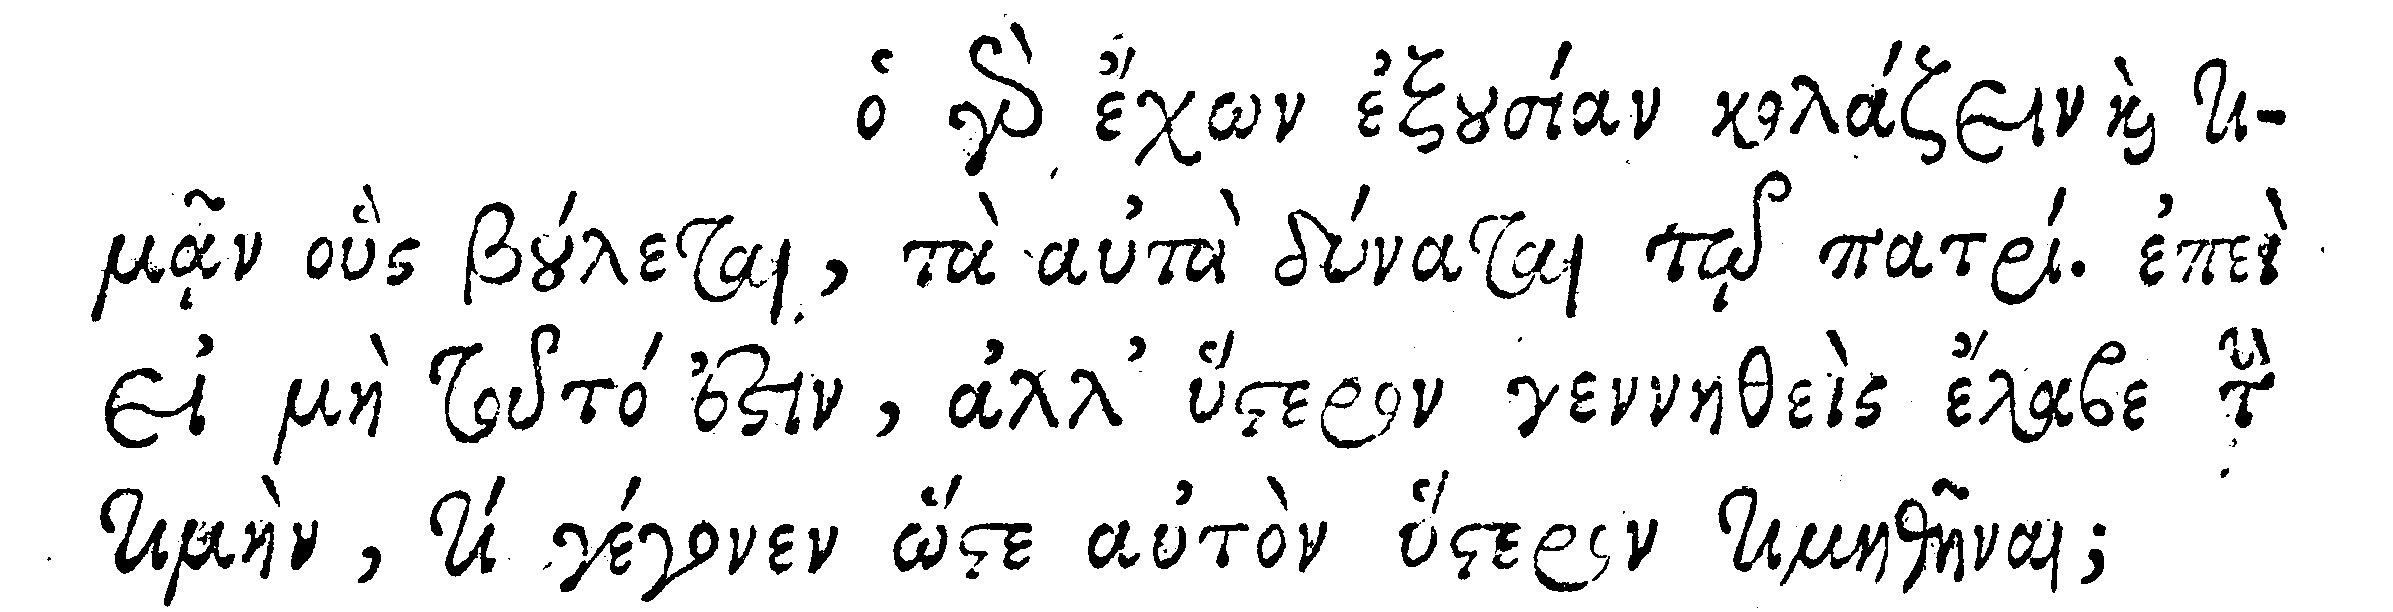 ὁ γὰρ ἔχων ἐξουσίαν κολάζειν καὶ τι-
μᾷν οὓς βούλεται, τὰ αὐτὰ δύναται τῷ πατρί. ἐπεὶ
εἰ μὴ τοῦτό ἐστιν, ἀλλ' ὕστερον γεννηθεὶς ἔλαβε τὴν
τιμὴν, τί γέγονεν ὥστε αὐτὸν ὕστερον τιμηθῆναι;